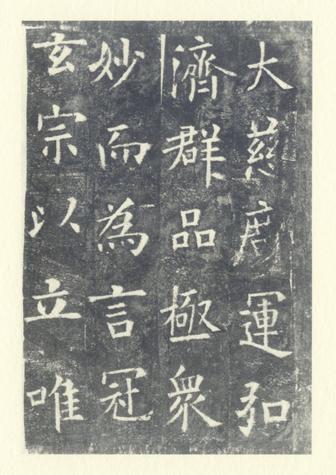 大慈運弘
濟群品極衆
妙而為言冠
玄宗以立唯